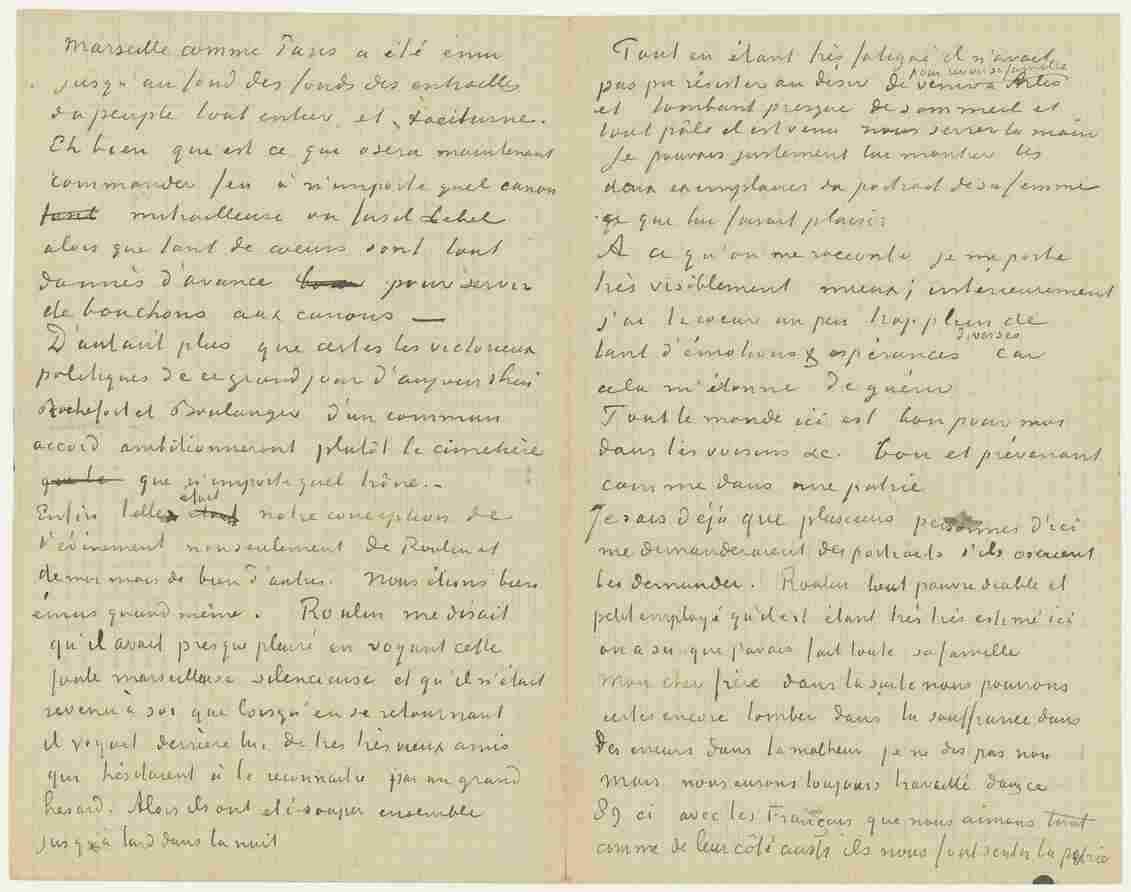 Marseille comme Paris a été ému
jusqu'au fond des fonds des entrailles
du peuple tout entier et taciturne.
Eh bien qu'est ce que osera maintenant
commander feu à n'importe quel canon
fusil mitrailleuse ou fusil Lebel
alors que tant de coeurs sont tout
donnés d'avance pour servir
de bouchons aux canons —
D'autant plus que certes les victorieux
politiques de ce grand jour d'aujourd'hui
Rochefort et Boulanger d'un commun
accord ambitionneront plutôt le cimetière
que le que n'importe quel trône. –
Enfin telle était notre conception de
l'évènement non seulement de Roulin et
de moi mais de bien d'autres. Nous étions bien
émus quand même. Roulin me disait
qu'il avait presque pleuré en voyant cette
foule marseillaise silencieuse et qu'il n'était
revenu à soi que lorsqu'en se retournant
il voyait derrière lui de très très vieux amis
qui hésitaient à le reconnaitre par un grand
hasard. Alors ils ont été souper ensemble
jusqu'à tard dans la nuit
Tout en étant très fatigué il n'avait
pas pu résister au désir de venir à Arles
pour revoir sa famille
et tombant presque de sommeil et
tout pâle il est venu nous serrer la main
Je pouvais justement lui montrer les
deux exemplaires du portrait de sa femme
ce que lui faisait plaisir
A ce qu'on me raconte je me porte
très visiblement mieux; intérieurement
j'ai le coeur un peu trop plein de
tant d'émotions & espérances diverses car
cela m'étonne de guérir
Tout le monde ici est bon pour moi
dans les voisins &c. bon et prévenant
comme dans une patrie
Je sais déjà que plusieurs personnes d'ici
me demanderaient des portraits s'ils oseraient
les demander. Roulin tout pauvre diable et
petit employé qu'il est étant très très estimé ici
on a su que j'avais fait toute sa famille
Mon cher frère dans la suite nous pourrons
certes encore tomber dans la souffrance dans
des erreurs dans le malheur je ne dis pas non
mais nous aurons toujours travaillé dans ce
89 ci avec les Français que nous aimons tant
comme de leur côté aussi ils nous font sentir la patrie